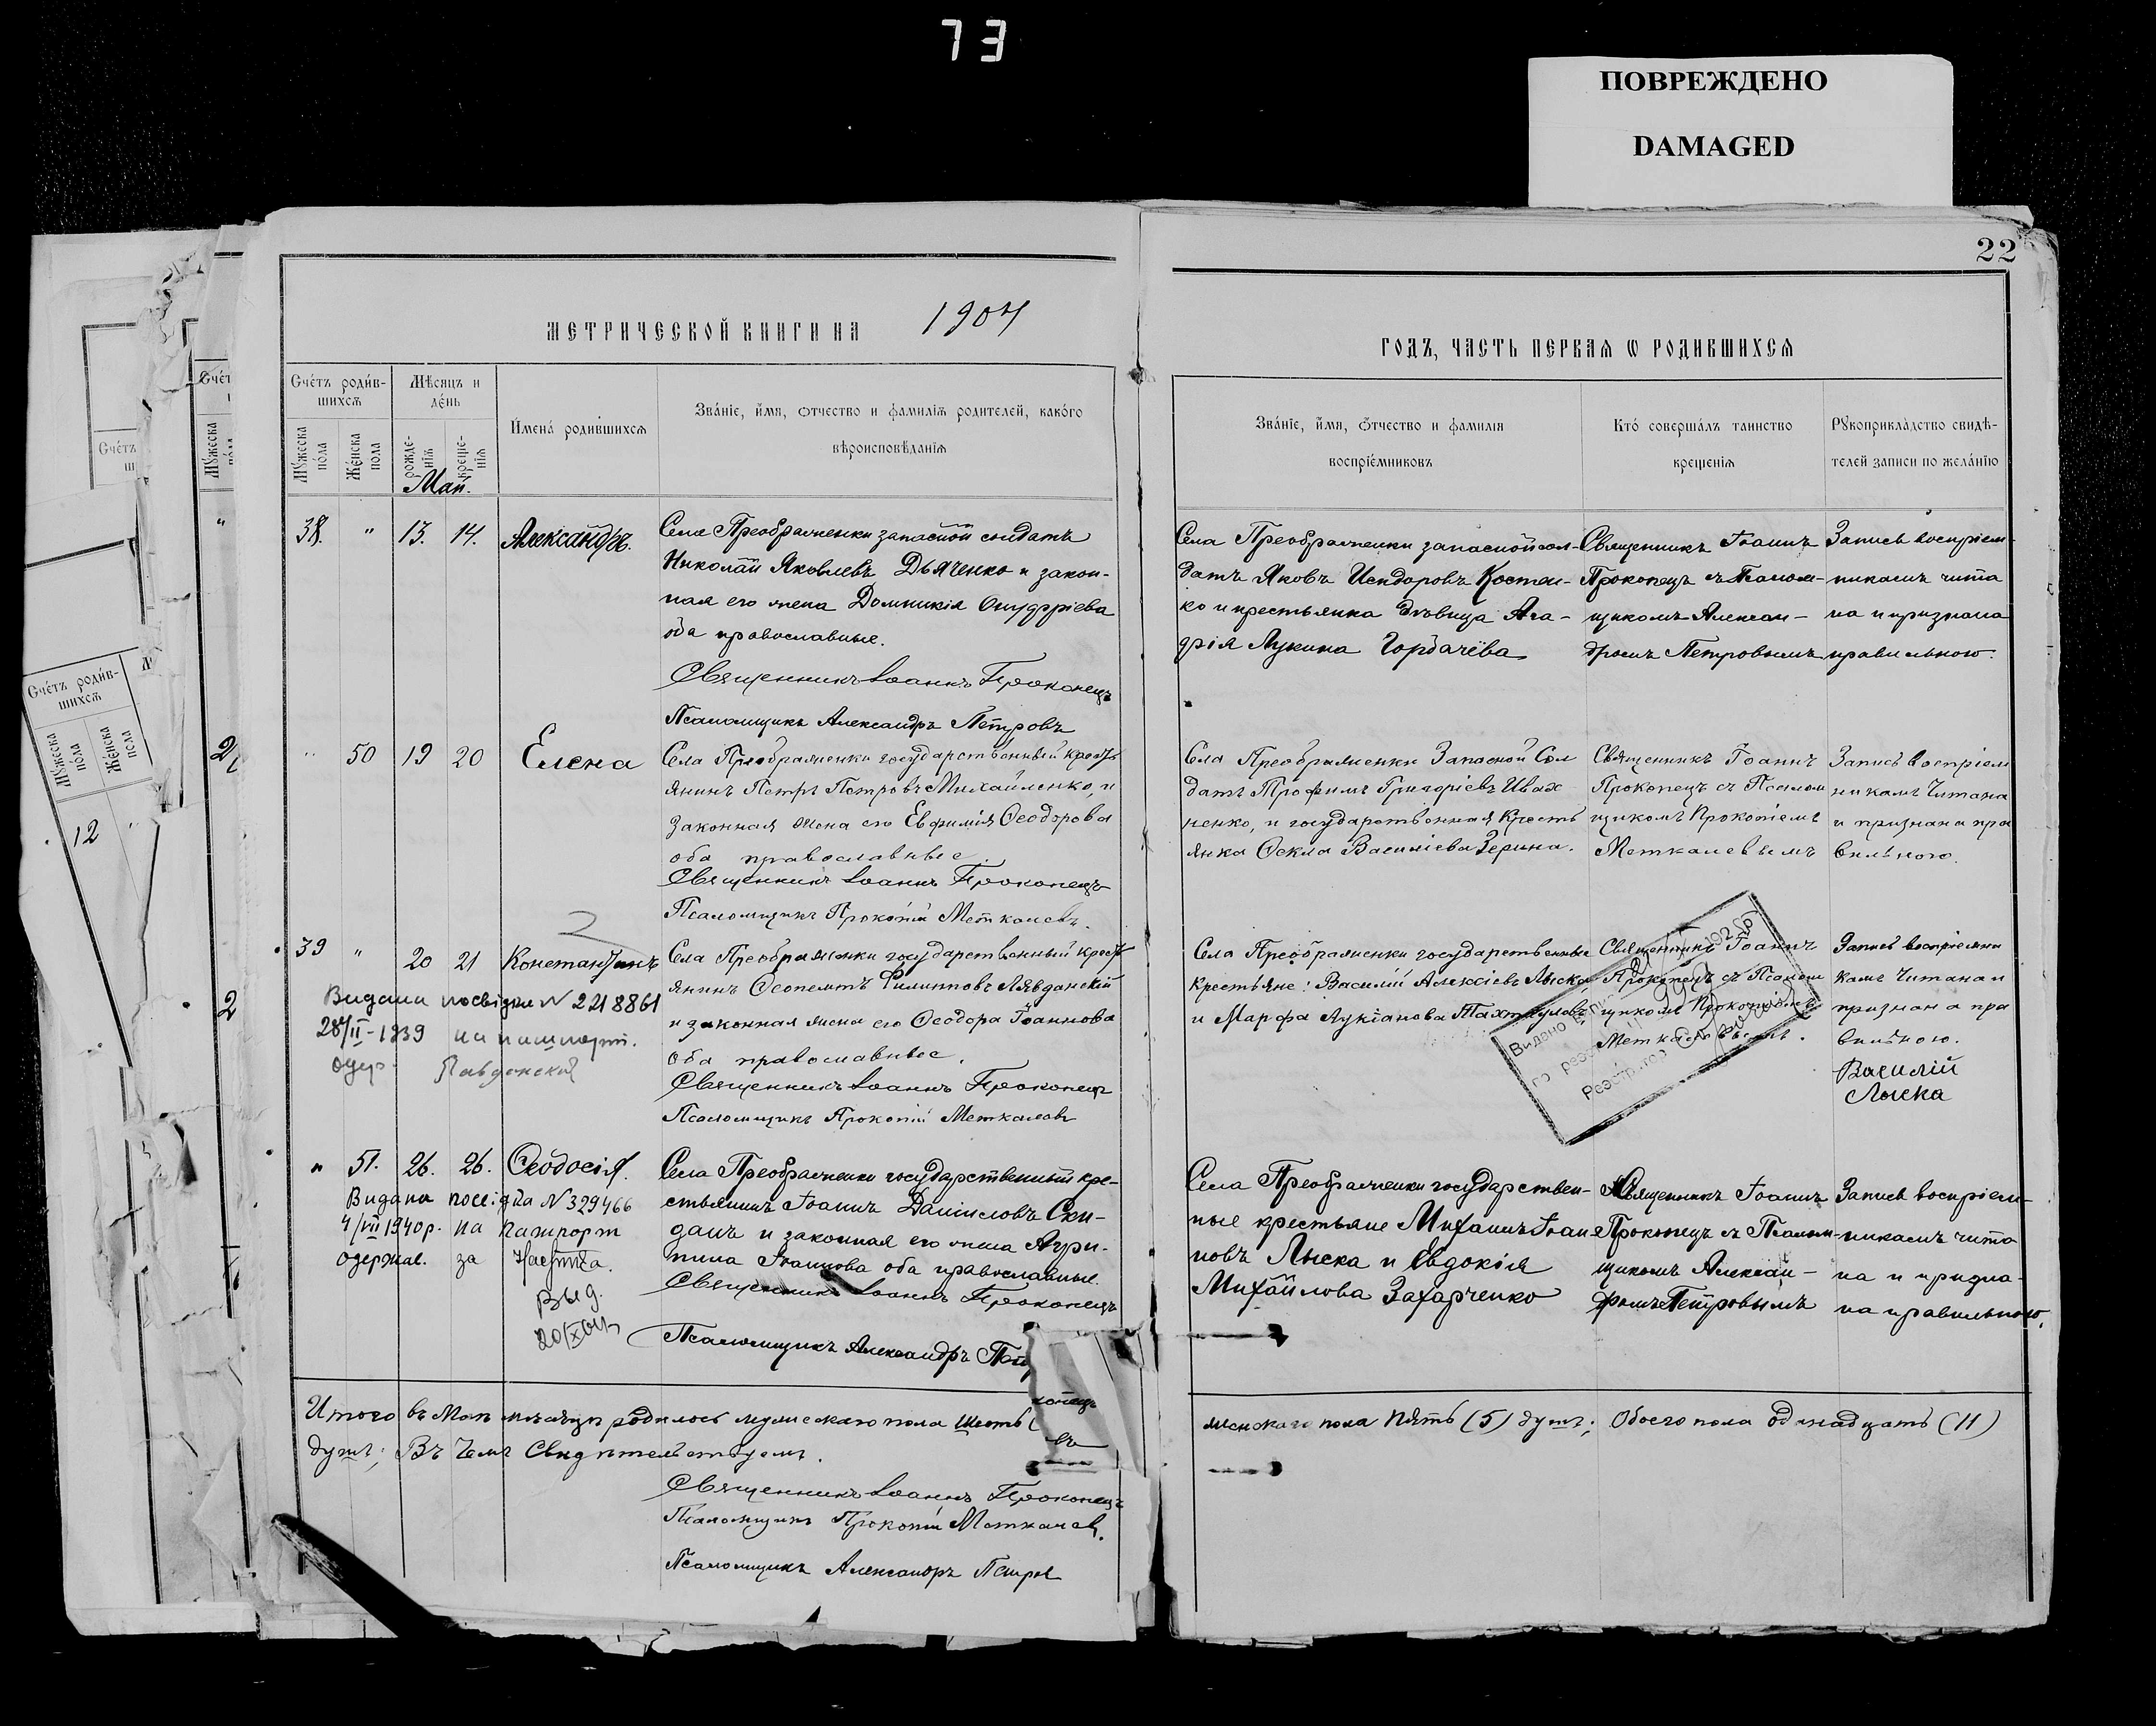 73
ПОВРЕЖДЕНО
DAMAGED
22
МЕТРИЧЕСКОЙ КНИГИ НА 1904
ГОДЪ, ЧАСТЬ ПЕРВАЯ Ѡ РОДИВШИХСЯ
Счéтъ роди́в-
шихсѧ
Мѣ́сяцъ и
дéнь
Мꙋ́жеска
пóла
Жéнска
пола
рожде-
нїѧ
креще-
нїѧ
И́мена́ роди́вшихсѧ
Звáнїе, и́мя, ѻтчество и фамилїѧ родителей, какóго
вѣроисповѣ́данїѧ
Звáнїе, и́мя, ѻ́тчество и фамилїя
воспрїéмниковъ
Ктó совершáлъ таинство
крещенїѧ
Рꙋкоприклáдство свидѣ́-
телей записи по желáнїю
Май.
38. " 13. 14. Александръ.
Села Преображенки запасной солдатъ
Николай Яковлевъ Дьяченко и закон-
ная его жена Домникія Онуфріева
оба православные.
Священникъ Іоаннъ Прокопецъ
Псаломщикъ Александръ Петровъ
Села Преображенки запасной сол-
датъ Яковъ Исидоровъ Костен-
ко и крестьянка дѣвица Ага-
фія Лукина Горбачёва
Священникъ Іоаннъ
Прокопецъ съ Псалом-
щикомъ Алексан-
дромъ Петровымъ
Запись воспріем-
никамъ чита
на и признана
правильною.
" 50 19 20 Елена
Села Преображенки государственный кресть
янинъ Петръ Петровъ Михайленко, и
законная жена его Евфимія Ѳеодорова
оба православные.
Священникъ Іоаннъ Прокопецъ
Псаломщикъ Прокопій Меткалевъ.
Села Преображенки Запасной Сол
датъ Трофимъ Григоріевъ Ивах
ненко, и государственная Кресть
янка Ѳекла Василіева Зерина.
Священникъ Іоаннъ
Прокопецъ съ Псалом
щикомъ Прокопіемъ
Меткалевымъ
Запись воспріем
никамъ Читана
и признана пра
вильною.
39 " 20 21 Константинъ
Видана посвідка N 2218861
28/II-1939 на пашпорт.
одер.
Села Преображенки государственный крест
янинъ Ѳеопемтъ Филипповъ Лявданскій
и законная жена его Ѳеодора Іоаннова
оба православные.
Священникъ Іоаннъ Прокопецъ
Псаломщикъ Прокопій Меткалевъ
Села Преображенки государственные
крестьяне: Василій Алексіевъ Лыска
и Марфа Лукіанова
Священникъ Іоаннъ
Прокопецъ съ Псалом
щикомъ Прокопіемъ
Меткалевымъ.
Видано
Запись воспріемни
камъ Читана и
признана пра
вильною.
Василій
Лыска
" 51. 26. 26. Ѳеодосія.
Видана посвідка N 329466
4/VII 1940р. на пашпорт
одержав. за
выд.
Села Преображенки государственный кре-
стьянинъ Іоаннъ Даніиловъ Ски-
данъ и законная его жена Агри-
пина Іоаннова оба православные.
Священникъ Іоаннъ Прокопецъ
Псаломщикъ Александръ
Села Преображенки государствен-
ные крестьяне Михаилъ Іоан-
новъ Лыска и Евдокія
Михайлова Захарченко
Священникъ Іоаннъ
Прокопецъ съ Псалом-
щикомъ Алексан-
дромъ Петровымъ
Запись воспріем-
никамъ чита
на и призна-
на правильною.
Итого въ Маѣ мѣсяцѣ родилось мужескаго пола шесть
душъ; Въ Чемъ Свидѣтельствуемъ.
женскаго пола пять (5) душъ; Обоего пола одинадцать (11)
Священникъ Іоаннъ Прокопецъ
Псаломщикъ Прокопій Меткалевъ.
Псаломщикъ Александръ Петров
Счéтъ роди́в-
шихсѧ
Мꙋ́жеска
пóла
Жéнска
пола
12